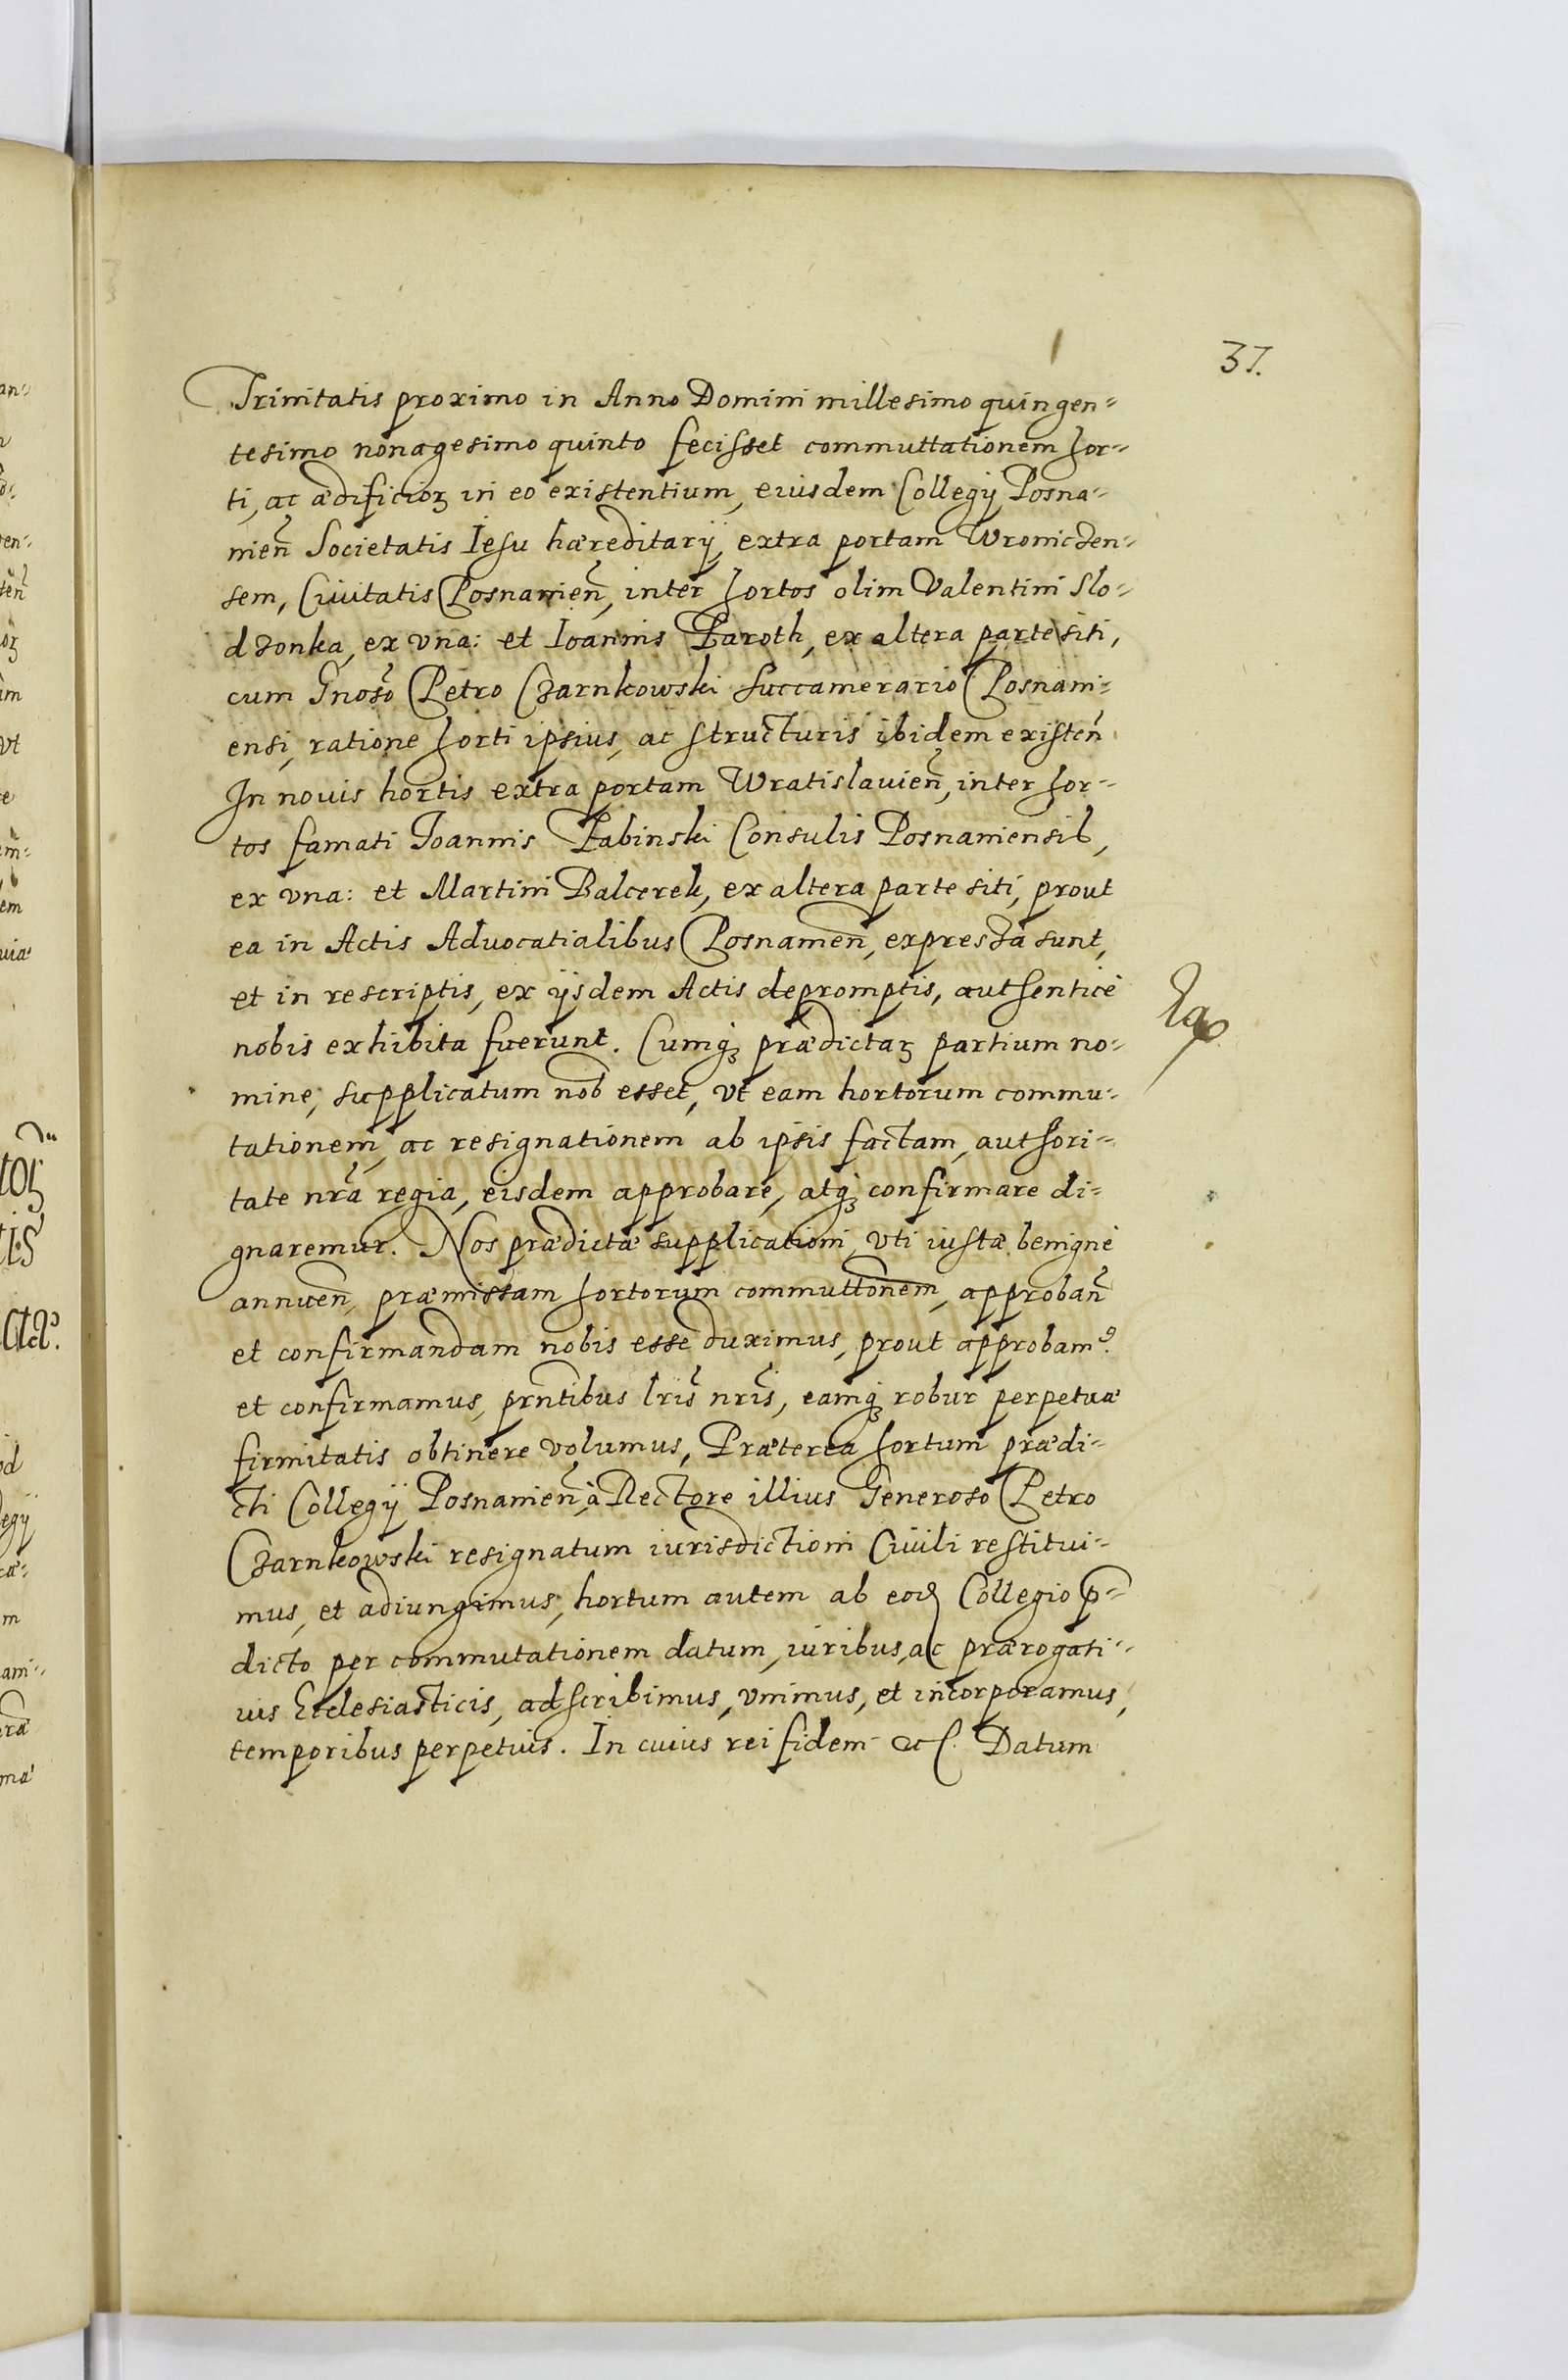 37.
Trinitatis proximo in Anno Domini millesimo quingen=
tesimo nonagesimo quinto fecisset commuttationem hor=
ti, ac ædificioꝝ in eo existentium, eiusdem Collegij Posna=
nien̄ Societatis Iesu hæreditarij, extra portam Wronicżen=
sem, Ciuitatis Posnanien̄, inter hortos olim Valentini Slo=
dzonka, ex vna: et Ioannis Paroth, ex altera parte siti,
cum Gnosō Petro Czarnkowski Succamerario Posnani=
ensi, ratione horti ipsius, ac structuris ibidem existen̄
In nouis hortis extra portam Wratislauien̄, inter hor=
tos famati Joannis Pabinski Consulis Posnaniensis,
ex vna: et Martini Balcerek, ex altera parte siti, prout
ea in Actis Aduocatialibus Posnanien̄, expressa sunt,
et in rescriptis, ex ijsdem Actis depromptis, authenticè
nobis exhibita fuerunt. Cumqꝫ prædictaꝝ partium no=
mine, supplicatum nob̄ esset, vt eam hortorum commu=
tationem, ac resignationem ab ipsis factam, authori=
tate nrā regia, eisdem approbare, atqꝫ confirmare di=
gnaremur. Nos prædictæ supplicationi, vti iustæ benignè
annuen̄, præmissam hortorum commuttōnem, approban̄
et confirmandam nobis esse duximus, prout approbamꝰ
et confirmamus, prn̄tibus lrīs nrīs, eamqꝫ robur perpetuæ
firmitatis obtinere volumus, Præterea hortum prædi=
cti Collegij Posnanien̄ à Rectore illius Generoso Petro
Czarnkowski resignatum iurisdictioni Ciuili restitui=
mus, et adiungimus, hortum autem ab eod Collegio p̄=
dicto per commutationem datum, iuribus, ac prærogati=
uis Ecclesiasticis, adscribimus, vnimus, et incorporamus,
temporibus perpetuis. In cuius rei fidem &c. Datum